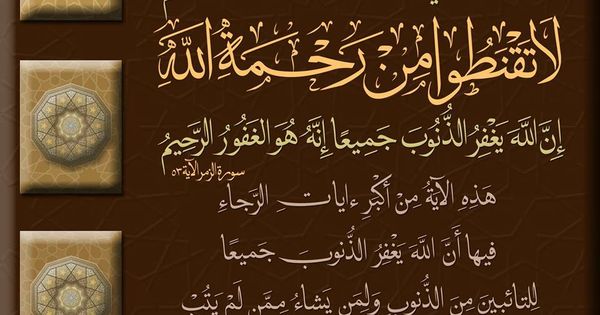 لَا تَقْنَطُوا مِن رَحْمَةِ اللَّهِ
إِنَّ اللَّهَ يَغْفِرُ الذُّنُوبَ جَمِيعًا إِنَّهُ هُوَ الْغَفُورُ الرَّحِيمُ
سورة الزمر الآية ٥٣
هَذِهِ الآيَةُ مِنْ أَكْبَرِ ءايَاتِ الرَّجَاءِ
فِيهَا أَنَّ اللَّهَ يَغْفِرُ الذُّنُوبَ جَمِيعًا
لِلتَائِبِينَ مِنَ الذُّنُوبِ وَلِمَن يَشَاءُ مِمَّن لَمْ يَتُبْ